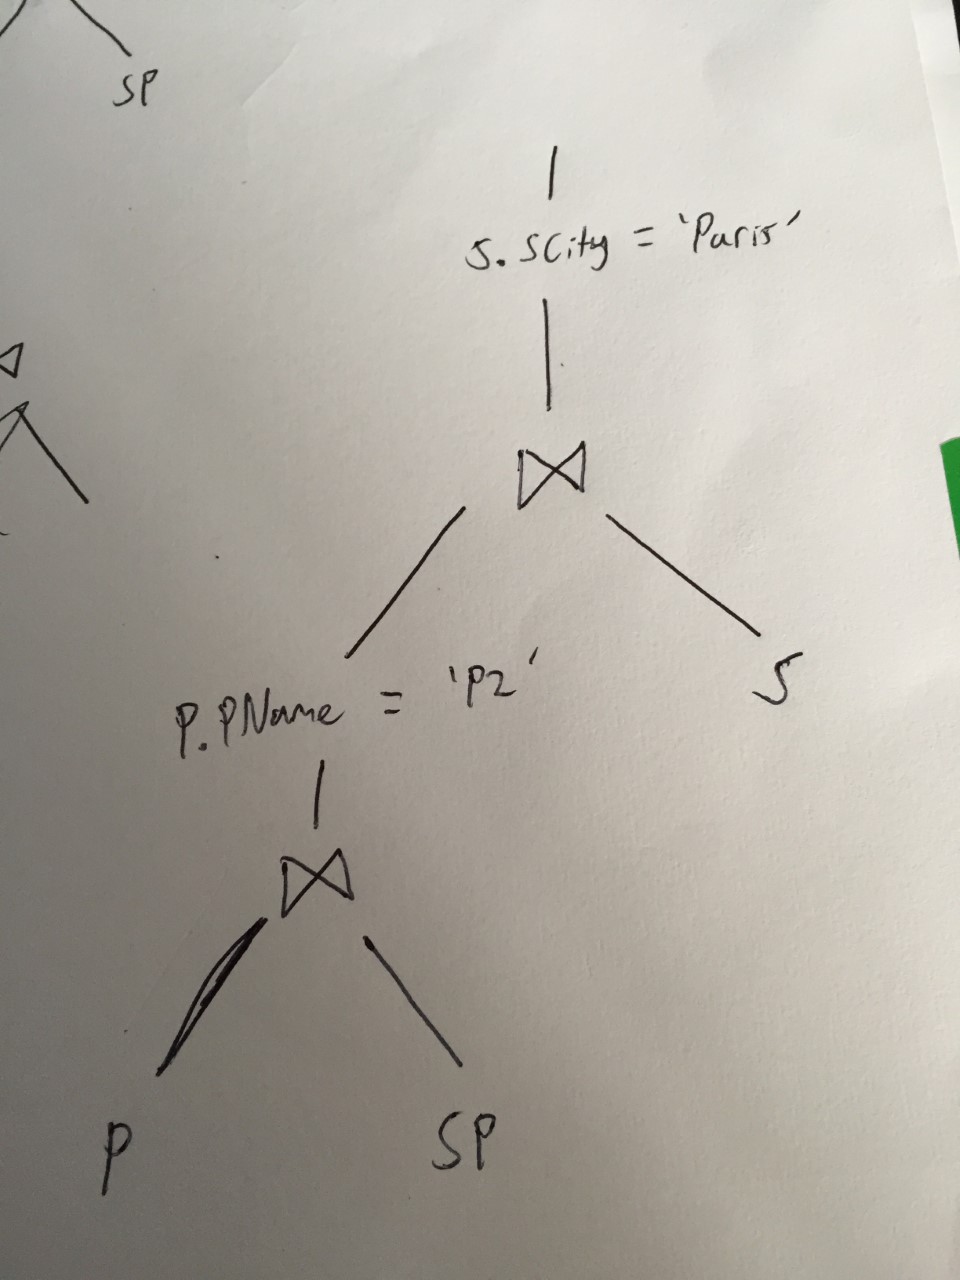 SP
S.SCity = 'Paris'
⋈
P.PName = 'P2'
S
⋈
P
SP